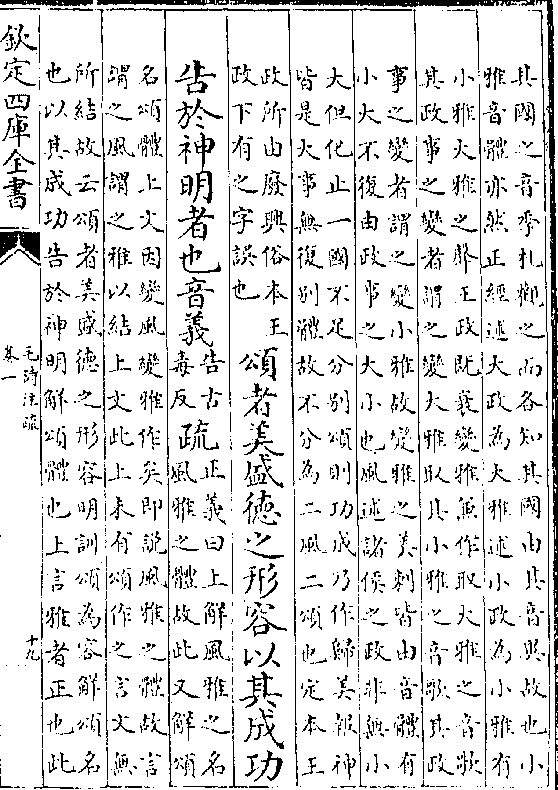 其國之音季札觀之而各知其國由其音異故也小
雅音體亦然正經述大政為大雅述小政為小雅有
小雅大雅之聲王政既衰變雅兼作取大雅之音歌
其政事之變者謂之變大雅取其小雅之音歌其政
事之變者謂之變小雅故變雅之美刺皆由音體有
小大不復由政事之大小也風述諸侯之政非無小
大但化止一國不足分別頌則功成乃作歸美報神
皆是大事無復別體故不分為二風二頌也定本王
政所由廢興俗本王
政下有之字誤也
頌者美盛德之形容以其成功
告於神明者也音義
告古
毒反
疏
正義曰上解風雅之名
風雅之體故此又解頌
名頌體上文因變風變雅作矣即說風雅之體故言
謂之風謂之雅以結上文此上未有頌作之言文無
所結故云頌者美盛德之形容明訓頌為容解頌名
也以其成功告於神明解頌體也上言雅者正也此
欽定四庫全書
毛詩注疏
卷一
十九